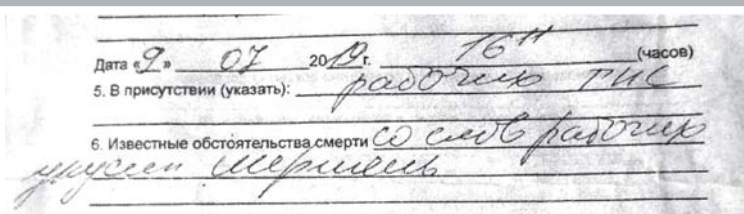 Дата «9» 07 2019 г. 16 11 (часов)
5. В присутствии (указать): рабочих ГНС
6. Известные обстоятельства смерти со слов рабочих
укусил шершень